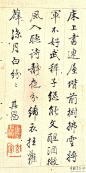 床上书连屋階前樹拂雲將
軍不好武稚子總能文醒酒微
風入聽詩靜夜分絺衣挂蘿
薜涼月白紛紛